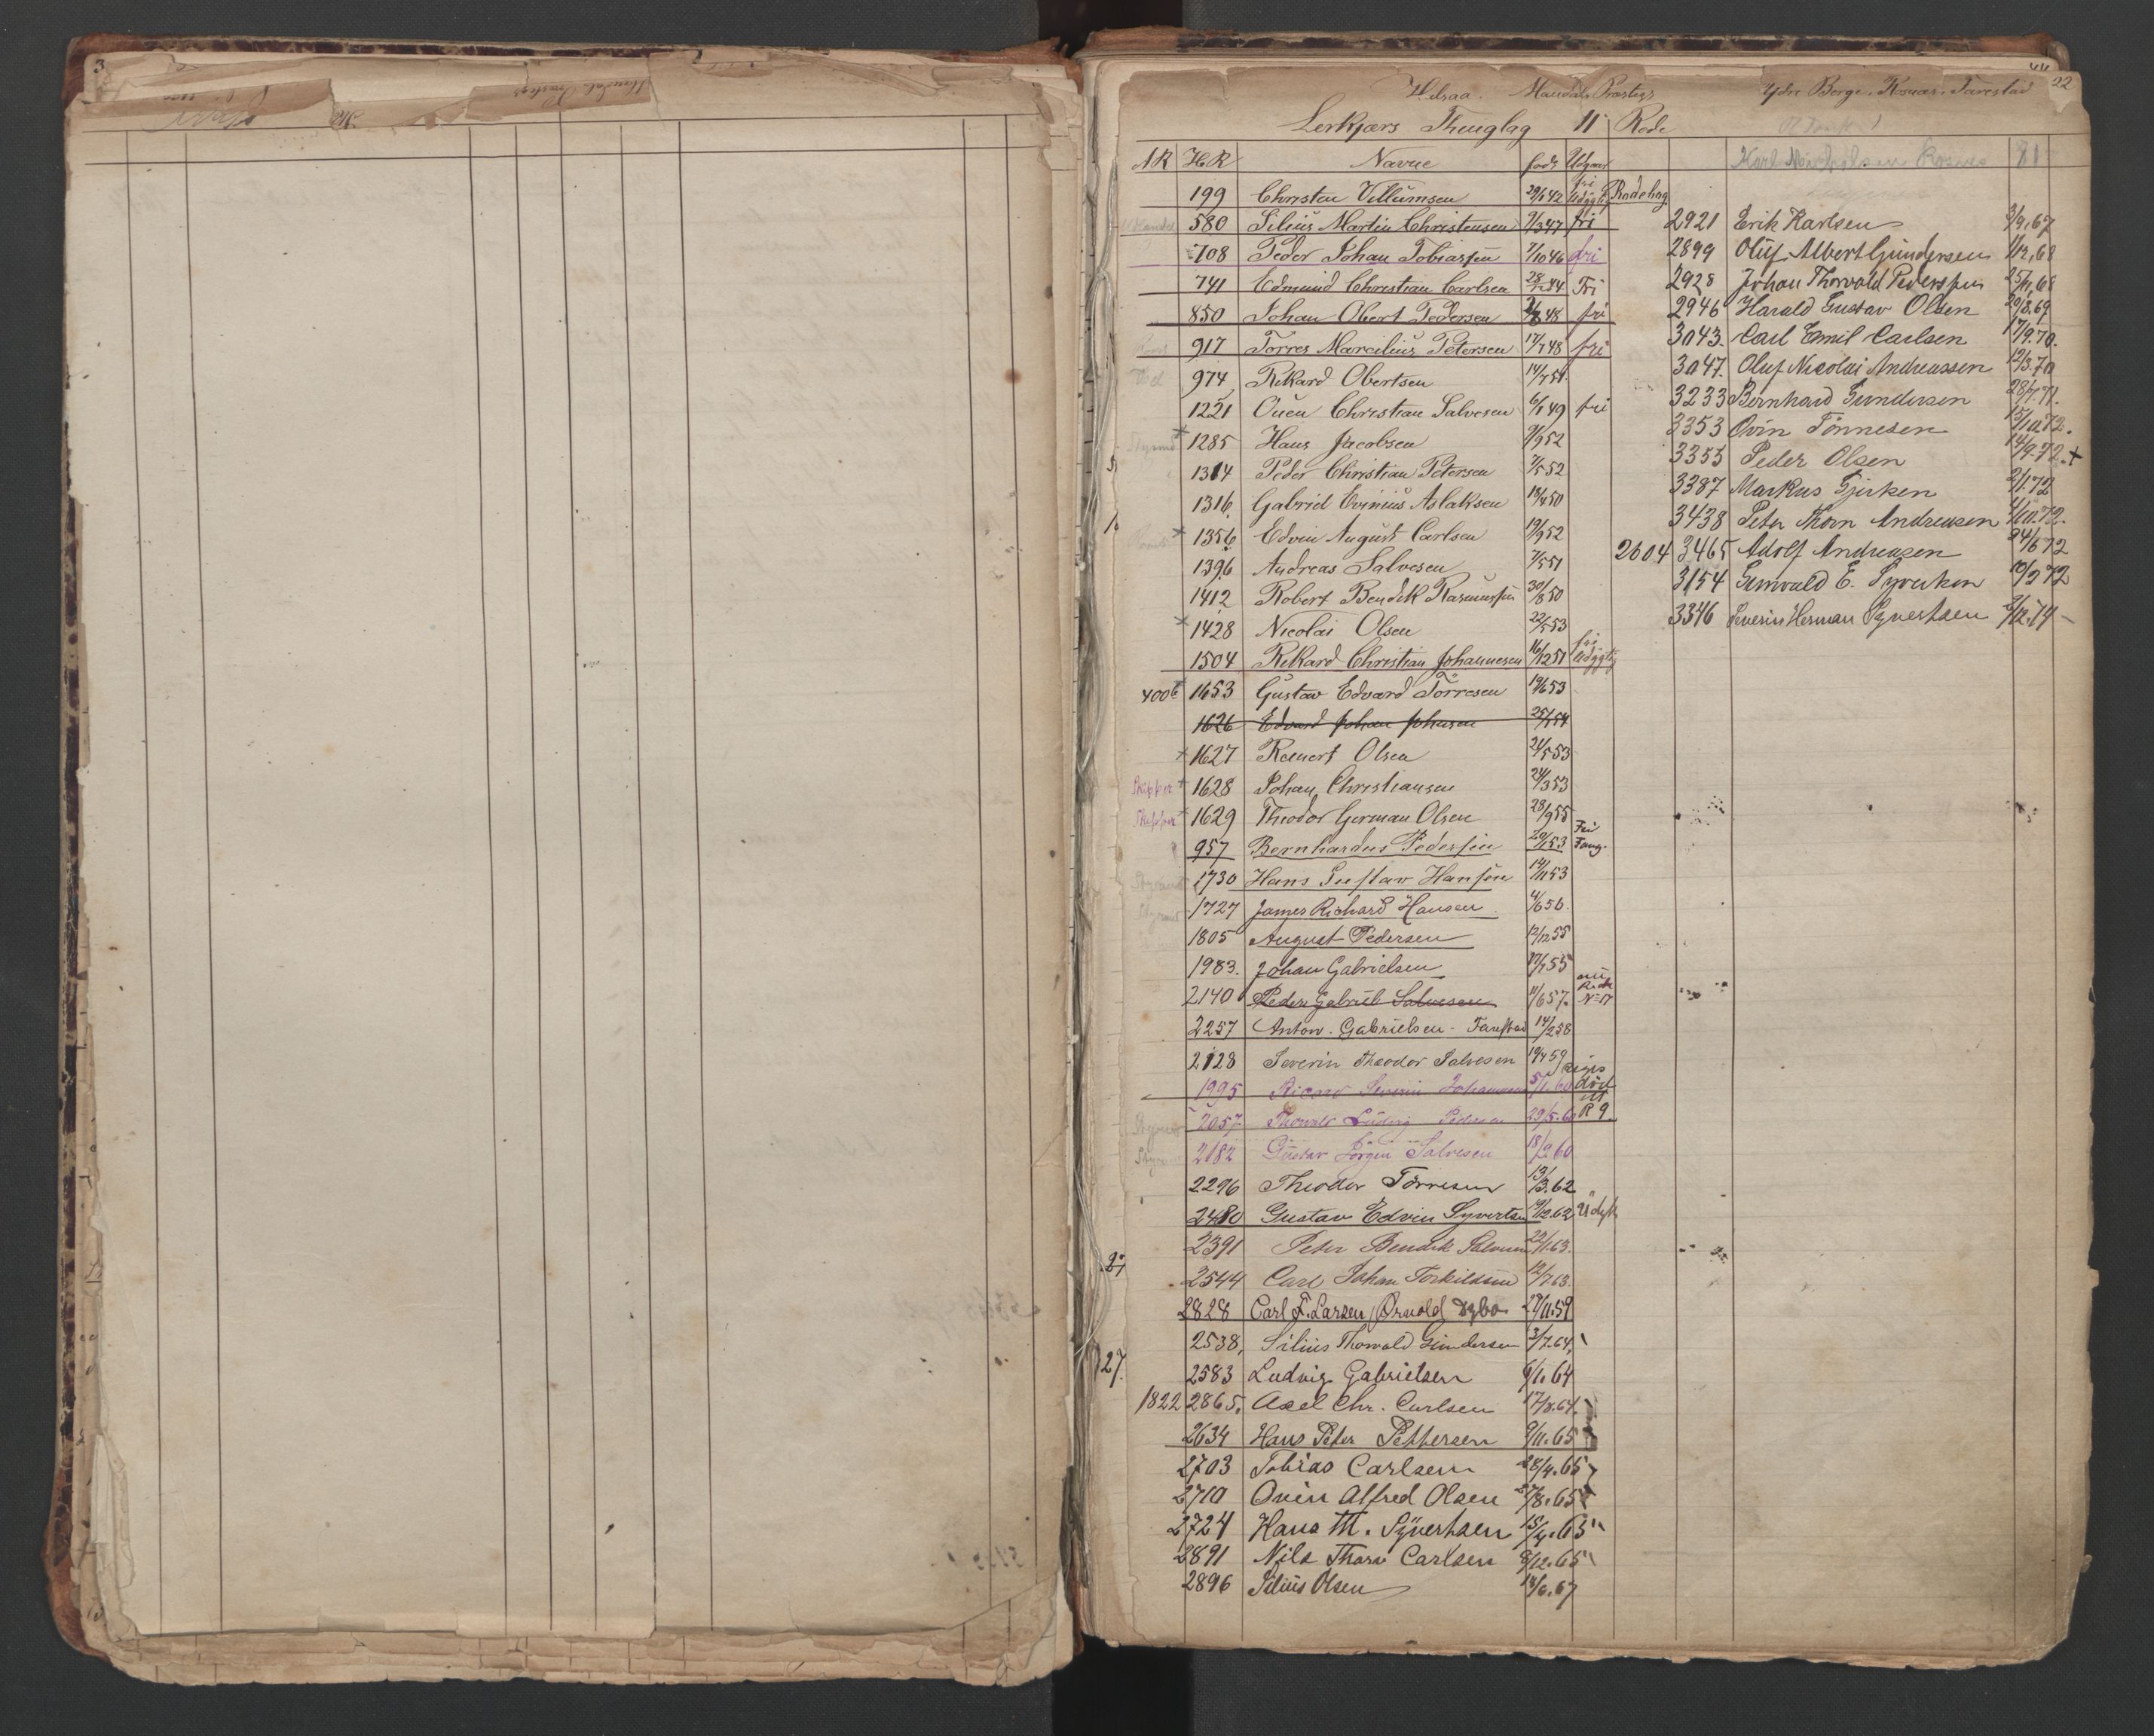 22
Helsaa. Mandals Præstegj Ydre Berge. Rosnæs. Tarestad
Lerkjærs Thinglag 11 Rode
AR HR Navne født Udgaar
199 Christen Villumsen 29/6 42 fri Udygtig Rodebog
580 Silius Martin Christensen 9/3 47 fri
708 Peder Johan Tobiassen 7/10 46 fri
741 Edmund Christian Carlsen 28/7 44 Fri
850 Johan Obert Pedersen 48 fri
917 Torres Marcilius Petersen 17/7 48 fri
974 Rikard Obertsen 14/7 51
1221 Ouen Christian Salvesen 6/1 49 fri
+ 1285 Hans Jacobsen 9/9 52
1314 Peder Christian Petersen 7/5 52
1316. Gabriel Evinius Aslaksen 18/4 50
+ 1356 Edvin August Carlsen 19/9 52
1396 Andreas Salvesen 7/5 51
1412 Robert Bendik Rasmussen 30/8 50
+ 1428 Nicolai Olsen 22/5 53
1504 Rikard Christian Johannesen 16/12 51 fri Udygtig
4006 1653 Gustav Edvard Torresen 19/6 53
1626 Edvard Johan Johnsen 25/1 54
+ 1627 Reinert Olsen 24/5 53
Skipper + 1628 Johan Christiansen 24/3 53
Skipper + 1629 Theodor German Olsen 28/9 55
957 Bernhardus Pedersen 20/1 53 Fri Tang.
1730 Hans Gustav Hansen 14/11 53
1727 James Richard Hansen 4/6 56.
1805 August Pedersen 12/12 55
1983. Johan Gabrielsen 17/7 55
2140 Peder Gabriel Salvesen 11/6 57. Rode No 17
2257 Anton. Gabrielsen - Tarestad 14/2 58
2128 Severin Theodor Salvesen 19/4 59
1995 Ricard Severin Johannesen 5/1 60 død
2057 Thorvald Ludvig Pedersen 29/5. 60 R 9
2182 Gustav Jörgen Salvesen 18/2 60
2296 Theodor Torresen 13/3. 62
2480 Gustav Edvin Syvertsen 19/12. 62 Udygt
2391 Peter Bendik Salvesen 22/1. 63.
2544 Carl Johan Torkildsen 12/7 63.
2828 Carl F. Larsen, Orvold Dybo. 29/11. 59
2538, Silius Thorvald Gundersen 3/7. 64,
27. 2583 Ludvig Gabrielsen 6/1. 64
1822 2865. Axel Chr. Carlsen 17/8. 64.
2634 Hans Peter Pettersen 9/11. 65
2703 Tobias Carlsen 28/4. 65
2710 Ovin Alfred Olsen 27/8. 65
2724 Hans M. Syvertsen 15/4. 65
2891 Nils Thorv Carlsen 8/12. 65
2896 Silius Olsen 14/6. 67
Karl Nicholsen Rosnes 81
2921 Erik Karlsen 3/9. 67
2899 Oluf Albert Gundersen 1/12, 68
2928 Johan Thorvald Pederssen 25/11, 68
2946 Harald Gustav Olsen 20/3. 69
3043. Carl Emil Carlsen 17/9. 70.
3047. Oluf Nicolai Andreassen 12/3. 70
3233 Bernhard Gundersen 28/7. 71.
3353 Ovin Tönnesen 15/10. 72.
3355 Peder Olsen 14/9. 72. +
3387 Markus Gjerken 2/1. 72
3438 Peter Thorn Andreasen 4/10. 72.
2604 3465 Adolf Andreasen 24/6 72
3154 Gunvald E. Syversen 10/3 72
3346 Severin Herman Syvertsen 3/12. 74